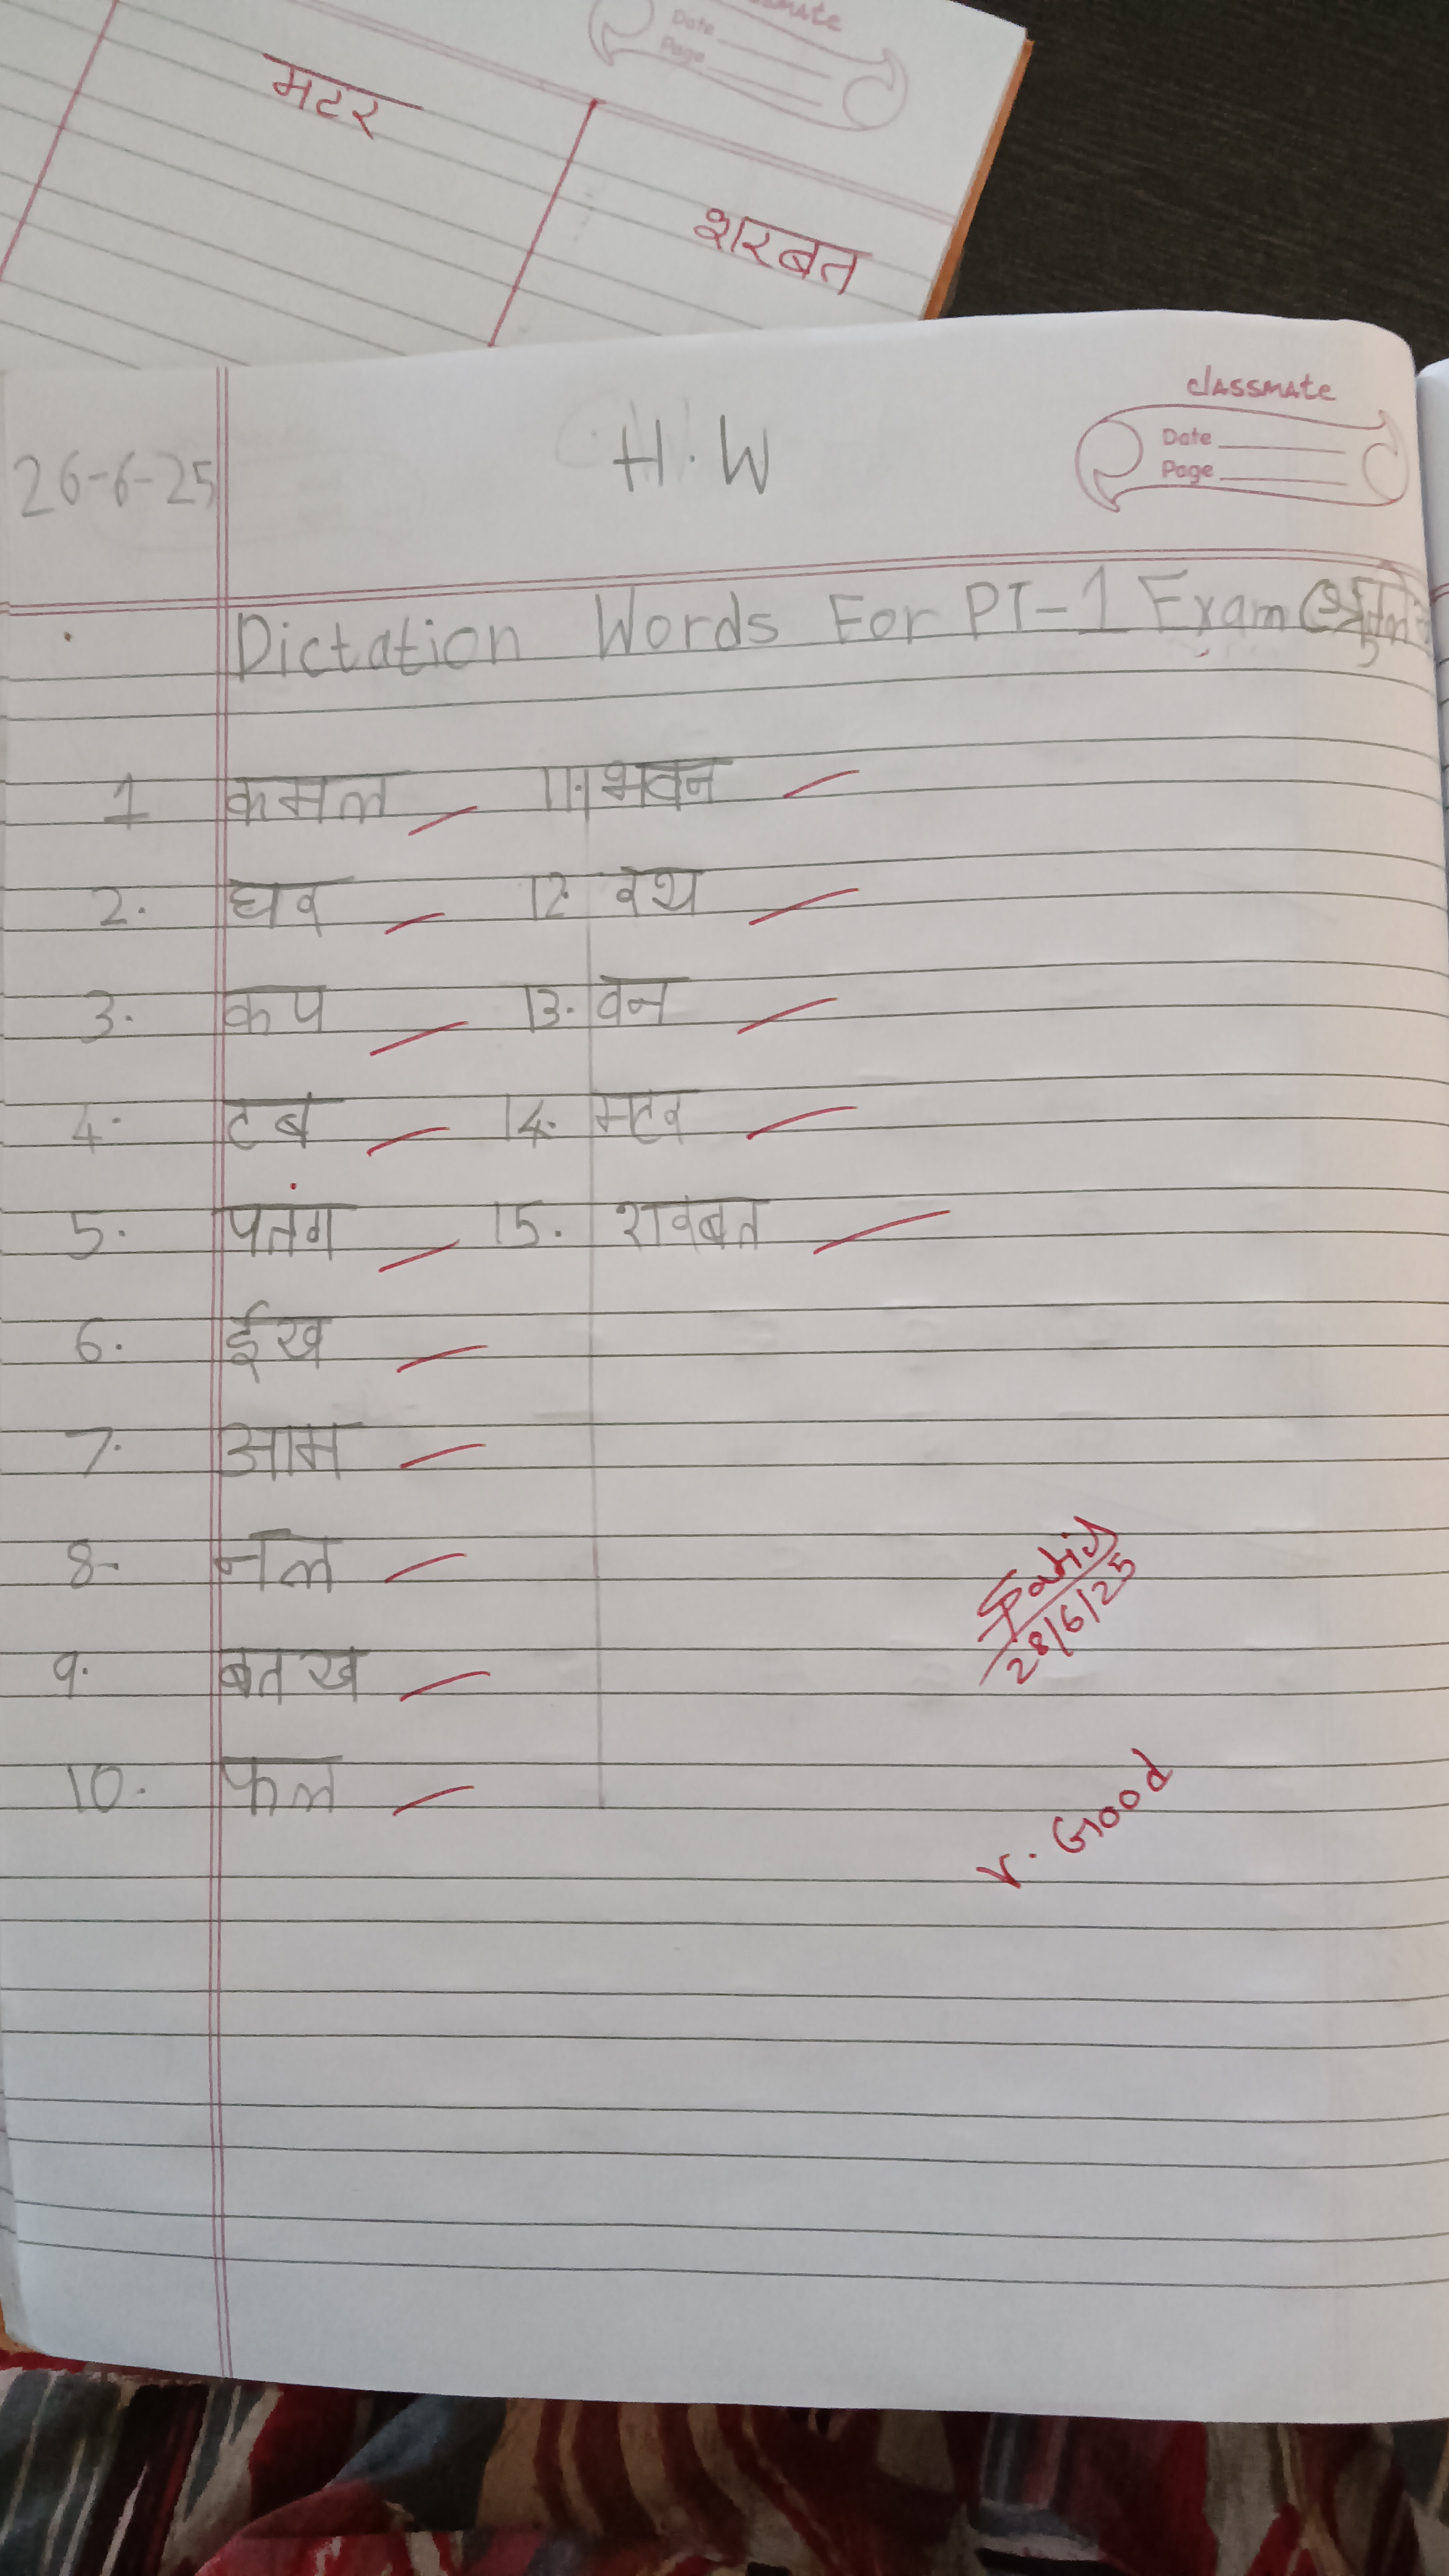 classmate
Date
Page
मटर
शरबत
classmate
Date
Page
26-6-25
H.W
Dictation Words For PT-1 Exam
1 कमल 11. भवन
2. घर 12. रथ
3. कप 13. वन
4. टब 14. मटर
5. पतंग 15. शरबत
6. ईख
7. आम
8. नल
9. बतख
10. फल
28/6/25
V. Good